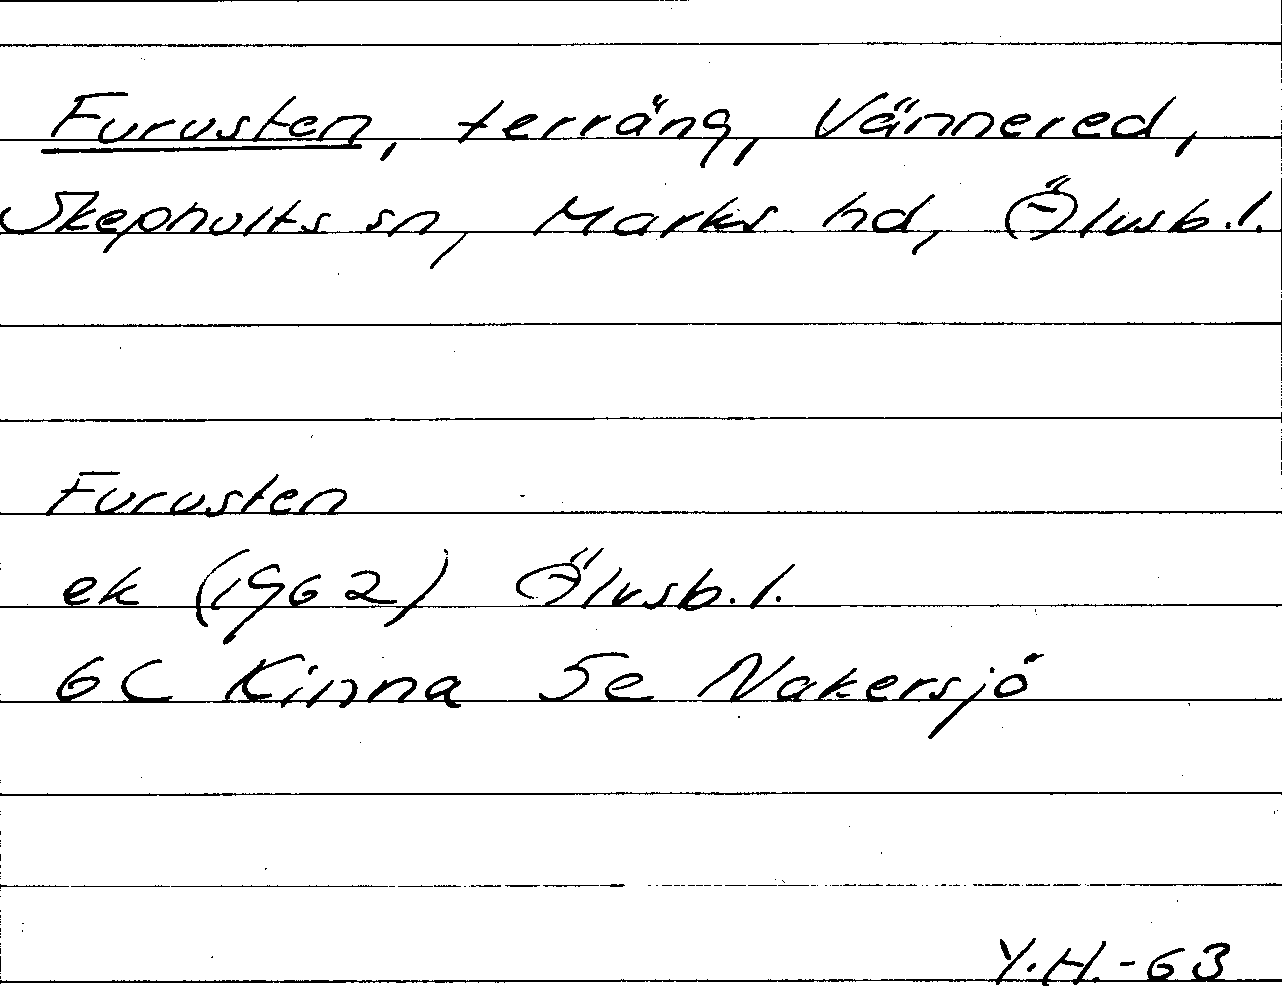 Furusten, terräng, Vännered,
Skephults sn, Marks hd, Älvsb.l.
Furusten
ek (1962) Älvsb.l.
6C Kinna 5e Nakersjö
Y.H.-63